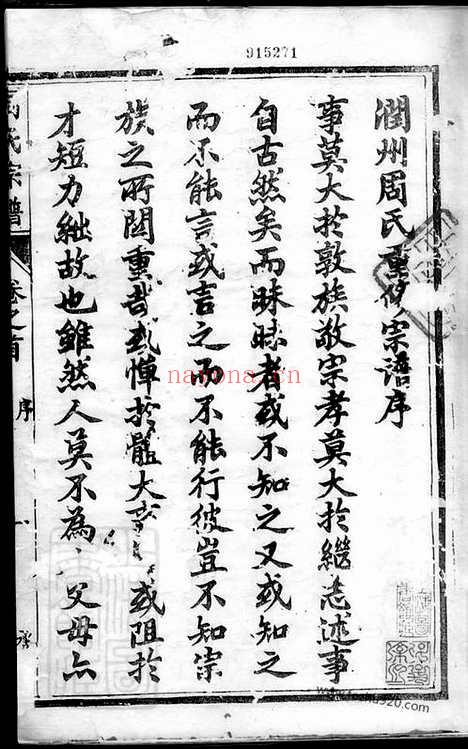 915271
潤州周氏重修宗譜序
事莫大於敦族敬宗孝莫大於繼志述事
自古然矣而昧昧者或不知之又或知之
而不能言或言之而不能行彼豈不知宗
族之所関重哉或憚於體大事 或阻於
才短力絀故也雖然人莫不為 父母亦
氏宗譜
卷之首
序
一
nayona.cn